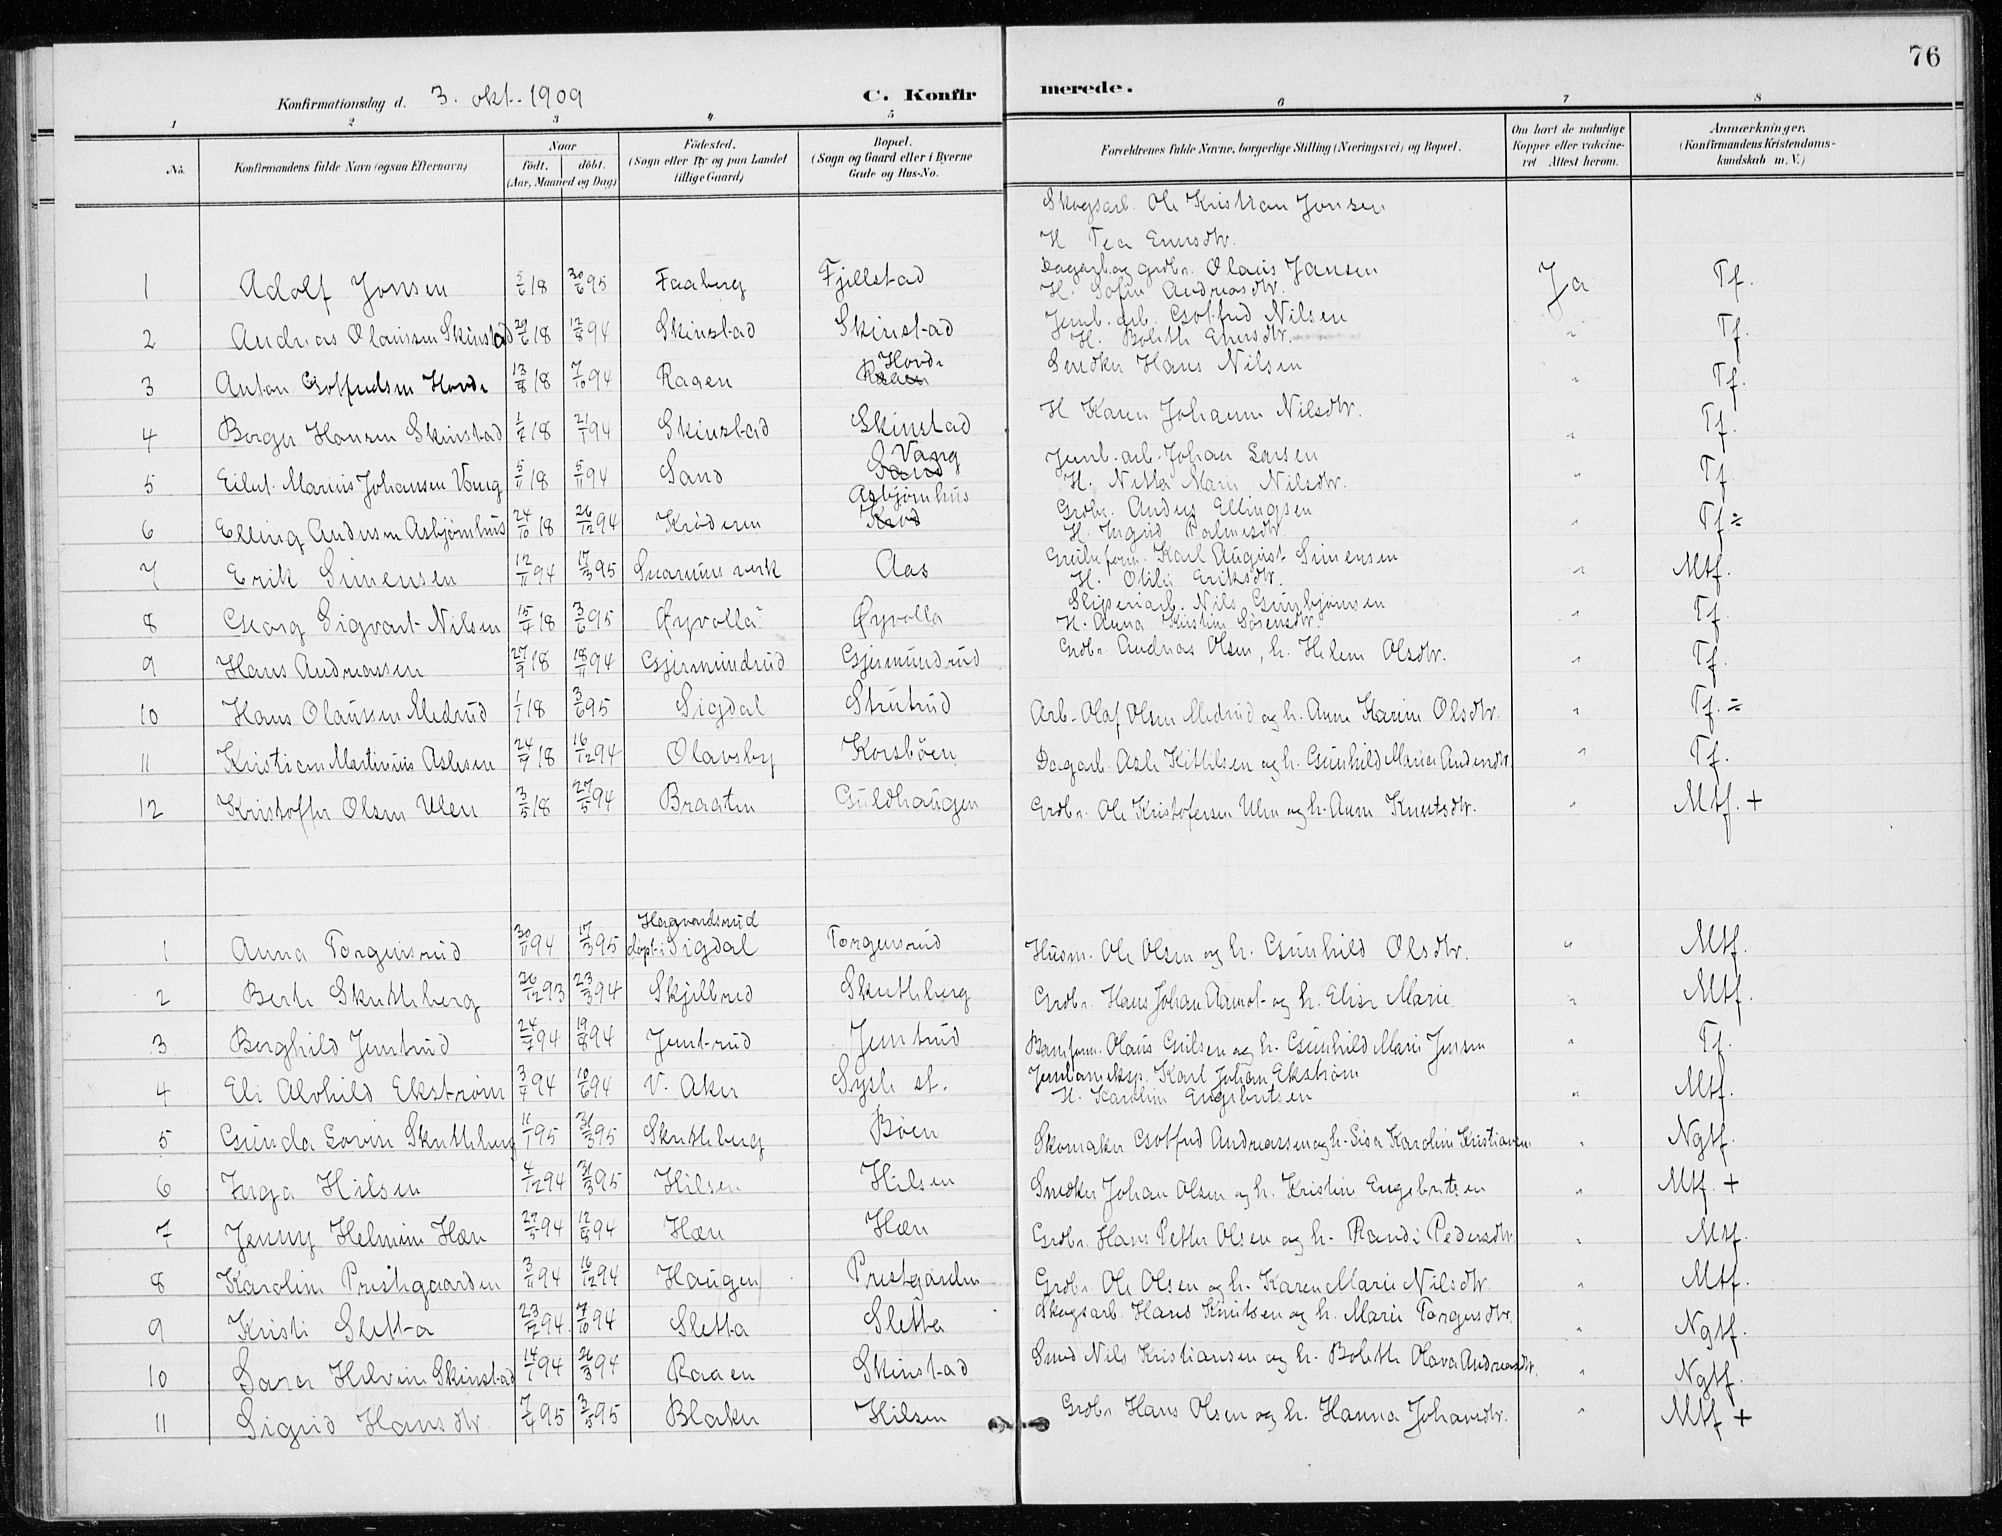 76
Konfirmationsdag d. 3. okt. 1909
C. Konfirmerede.
1 2 3 4 5 6 7 8
No.
Konfirmandens fulde Navn (ogsaa Efternavn)
Naar
født. døbt.
(Aar, Maaned og Dag)
Fødested.
(Sogn eller By og paa Landet tillige Gaard)
Bopæl.
(Sogn og Gaard eller i Byerne Gade og Hus-No.
Forældrenes fulde Navne, borgerlige Stilling (Næringsvei) og Bopæl.
Om havt de naturlige Kopper eller vakcineret Attest herom.
Anmærkninger, (Konfirmandens Kristendomskundskab m. V.)
Skogsarb. Ole Kristian Jonsen
H Tea
1 Adolf Jonsen 5/6 18 30/6 95 Faaberg Fjellstad Dagarb og grdbr. Olaus Jansen Ja Tf.
H. Sofie Andreasdtr.
2 Andreas Olaussen Skinstad 20/6 18 12/8 94 Skinstad Skinstad Jernb. arb. Gotfred Nilsen " Tf.
H. Bolette
3 Anton Gotfredsen Hovde 13/8 18 7/10 94 Raaen Hovde Raaen Snedker Hans Nilsen " Tf.
4 Borger Hansen Skinstad 18 94 Skinstad Skinstad H Karen Johanne Nilsdtr. " Tf.
5 Eilert Marius Johansen Vang 5/11 18 5/11 94 Sand Vang Sand Jernb. arb. Johan Larsen " Tf
H. Netta Marie Nilsdtr.
6 Elling Andersen Asbjørnhus 24/10 18 26/12 94 Krøderen Asbjørnhus Krød Grdbr. Anders Ellingsen " Tf÷
H. Ingrid Palmesdtr
7 Erik Simensen 12/11 94 17/3 95 Snarums verk Aas Grubeform. Karl August Simensen " Mtf.
H. Otilie Eriksdtr.
8 Georg Sigvart Nilsen 15/4 18 3/6 95 Øyvolla Øyvolla Sliperiarb. Nils Gunbjørnsen " Tf
H. Anna Kristine Sørensdtr.
9 Hans Andreassen 27/9 18 18/11 94 Gjermundrud Gjermundrud Grdbr. Andreas Olsen, h. Helene Olsdtr. " Tf.
10 Hans Olaussen Medrud 1/1 18 3/6 95 Sigdal Strutrud Arb. Olaf Olsen Medrud og h. Anne Karine Olsdtr. " Tf. ÷
11 Kristian Martinius Aslesen 24/7 18 16/12 94 Olavsby Korsbøen Dagarb. Asle Kittilsen og h. Gunhild Marie Andersdtr " Tf.
12 Kristoffer Olsen Ulen 3/5 18 27/5 94 Braaten Guldhaugen Grdbr. Ole Kristofersen Ulen og h. Anne Knutsdtr. " Mtf. +
1 Anna Torgersrud 30/11 94 17/3 95 Hagvardsrud døpt i Sigdal Torgersrud Husm. Ole Olsen og h. Gunhild Olsdtr. " Mtf.
2 Berte Skutteberg 26/12 93 23/3 94 Skjelbred Skutteberg Grdbr. Hans Johan Aamot og h. Elise Marie " Mtf.
3 Borghild Jentrud 24/7 94 19/8 94 Jentrud Jentrud Banform. Olaus Gulsen og h. Gunhild Marie Jensen " Tf.
4 Eli Alvhild Ekstrøm 3/4 94 10/6 94 V. Aker Sysle st. Jernbaneeksp. Karl Johan Ekstrøm " Mtf.
H. Karoline Engebretsen
5 Gunda Lovise Skutteberg 11/1 95 31/3 95 Skutteberg Bøen Skomaker Gotfred Andreassen og h. Lisa Karoline Kristiansen " Ngtf.
6 Inga Hilsen 4/12 94 31/3 95 Hilsen Hilsen Snedker Johan Olsen og h. Kristine Engebretsen " Mtf. +
7 Jenny Helmine Hæn 29/5 94 12/8 94 Hæn Hæn Grdbr. Hans Petter Olsen og h. Randi Pedersdtr. " Mtf.
8 Karoline Prestegaarden 3/11 94 16/12 94 Haugen Prestgarden Grdbr. Ole Olsen og h. Karen Marie Nilsdtr. " Mtf.
9 Kristi Sletta 23/12 94 7/10 94 Sletta Sletta Skogsarb. Hans Knutsen og h. Marie Torgersdtr. " Ngtf.
10 Sara Helvine Skinstad 14/1 94 26/3 94 Raaen Skinstad Smed Nils Kristiansen og h. Bolette Olava Andreasdtr. " Ngtf.
11 Sigrid Hansdtr. 7/4 95 3/5 95 Blaker Hilsen Grdbr. Hans Olsen og h. Hanna Johansdtr. " Mtf +